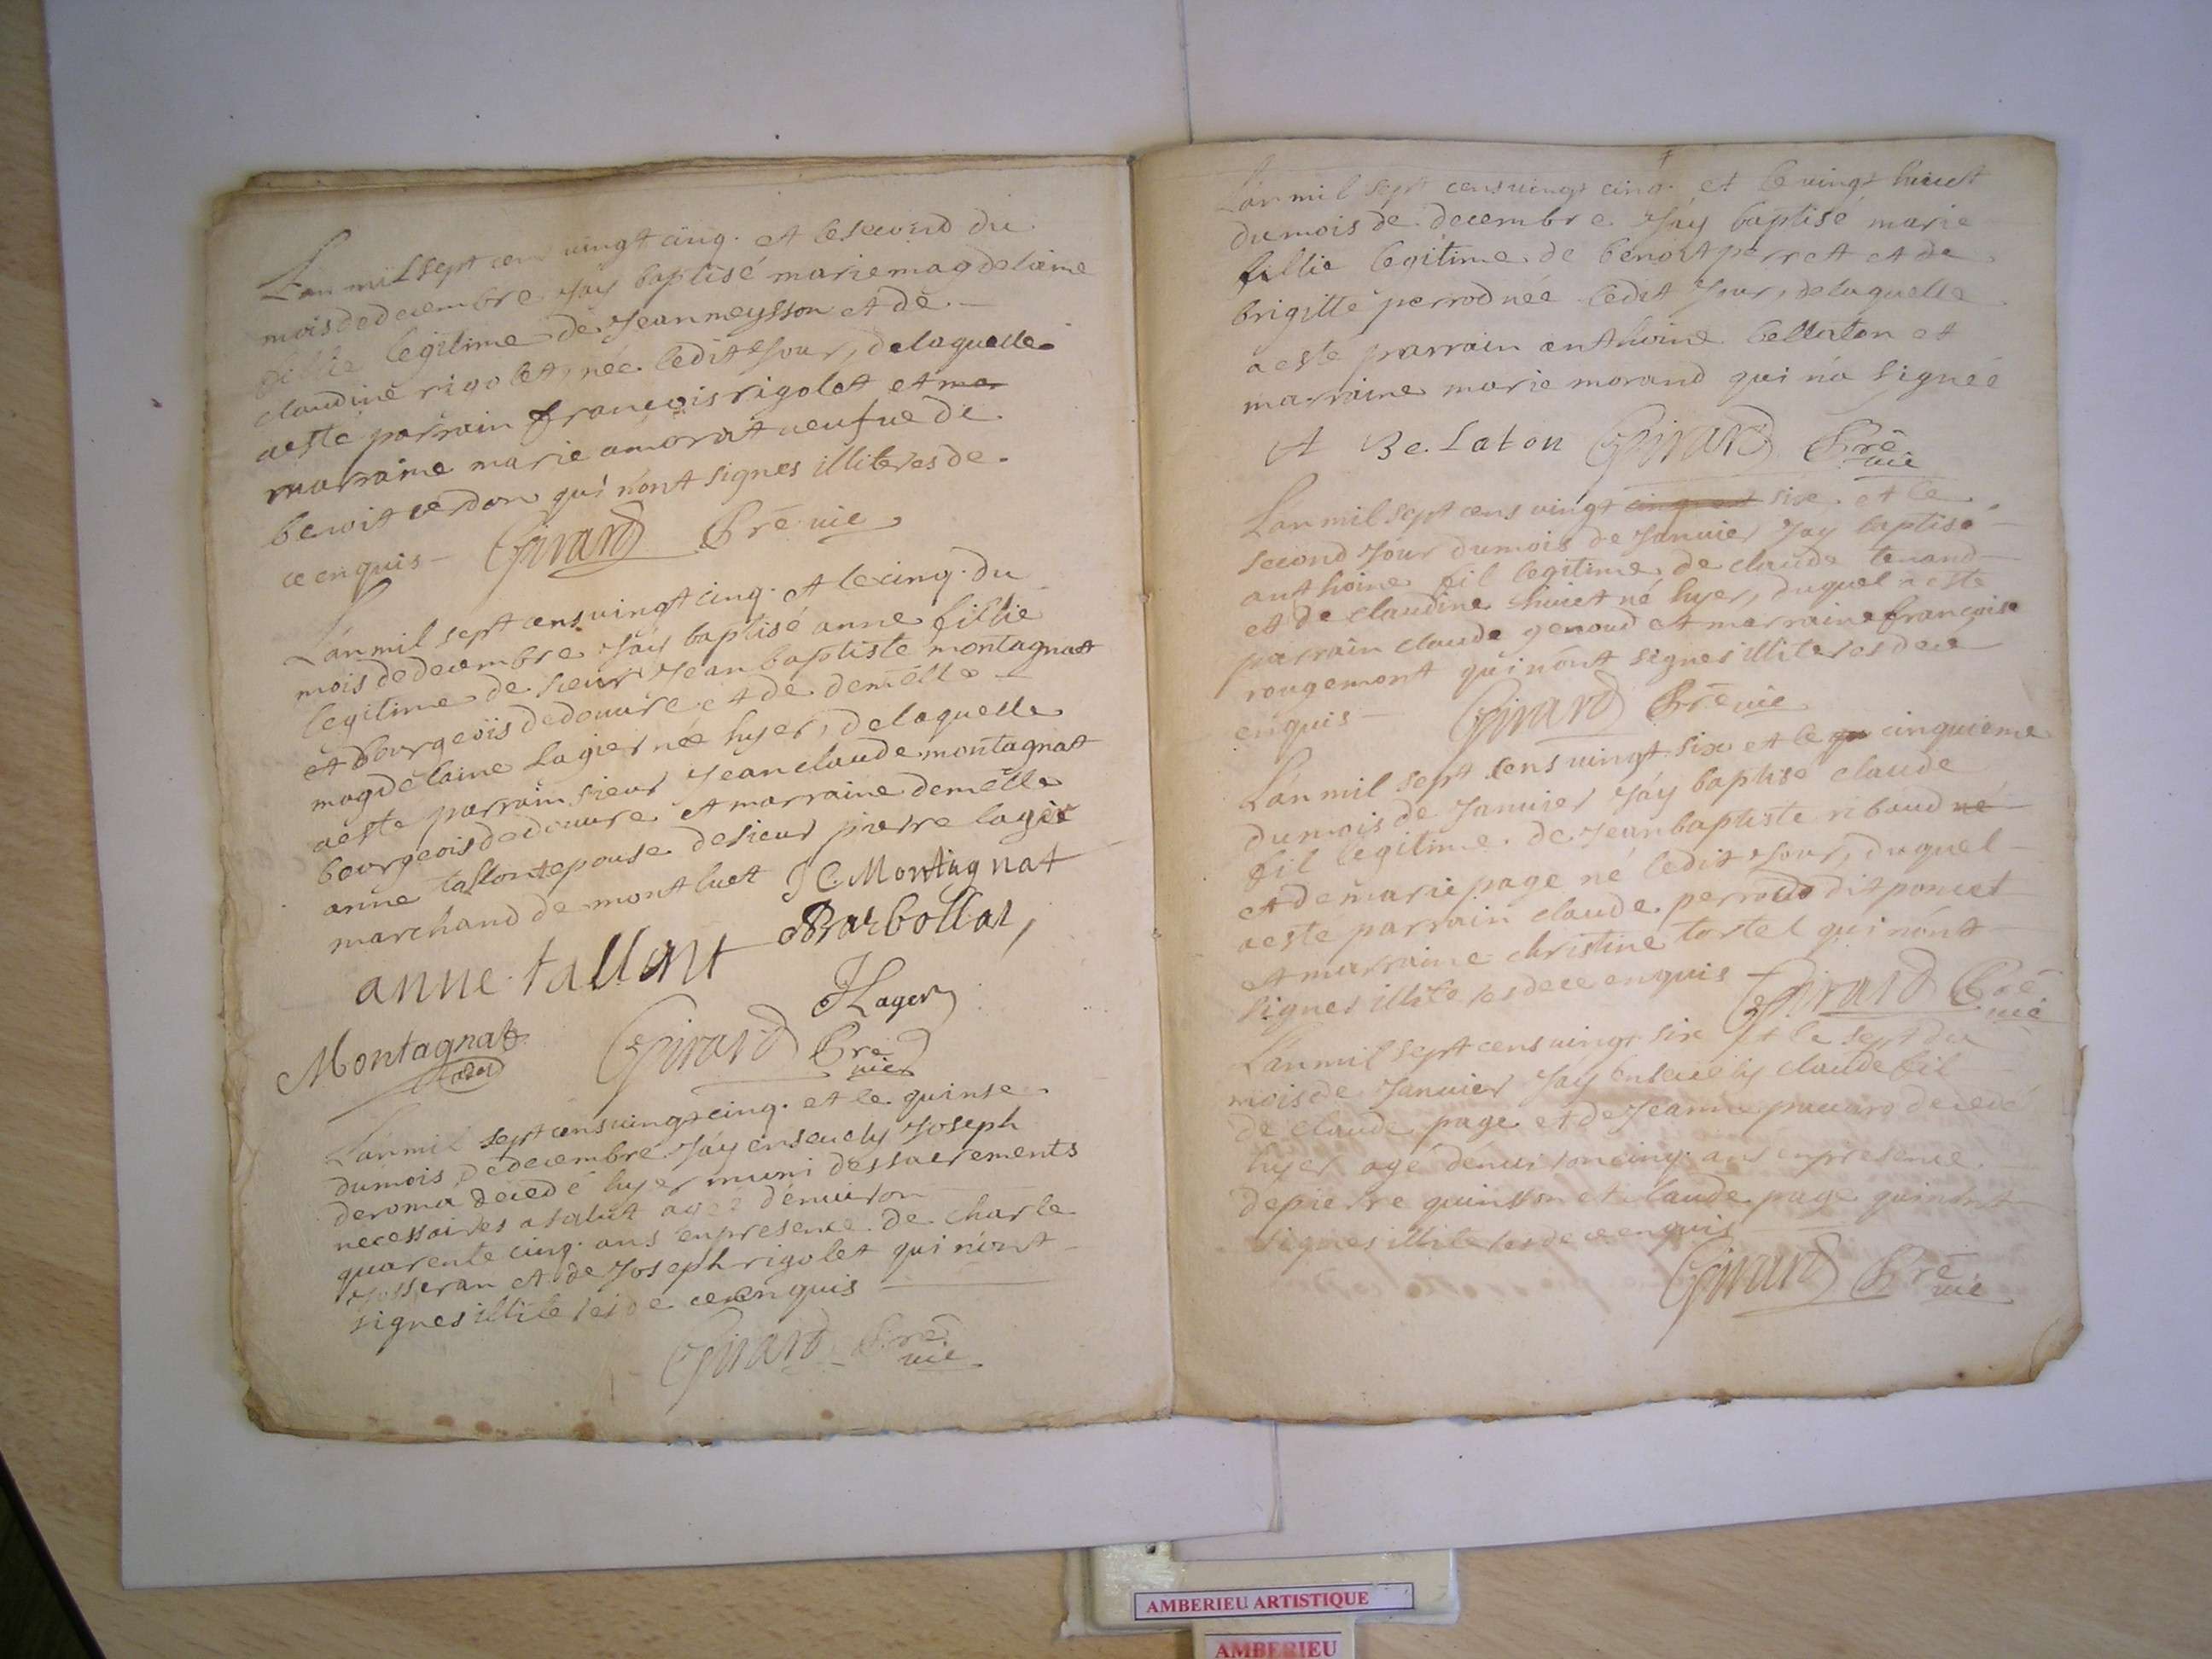 L'an mil sept cens vingt cinq. et le second du
mois de decembre J'ay baptisé marie magdelaine
fillie legitime de Jean meysson et de
claudine rigolet, née ledit Jour, de laquelle
a esté parrain françois rigolet et ma
marraine marie amorat veufve de
benoit verdon qui n'ont signes illiteres de
ce enquis Girard Prê vie
L'an mil sept cens vingt cinq. et le cinq. du
mois de decembre J'ay baptisé anne fillie
legitime de sieur Jean baptiste montagnat
et bourgeois de douvre et de demelle
magdelaine Lagier née hyer, de laquelle
a este parrain sieur Jean claude montagnat
bourgeois de douvre et marraine demelle
anne tallont epouse de sieur pierre lagier
marchand de montluet J C. Montagnat
anne tallont Barbollat
JLager
Montagnat Girard Prê
vier
L'an mil sept cens vingt cinq. et le quinse
du mois de decembre J'ay ensevely Joseph
deroma decedé hyer muni des sacrements
necessaires a salut agé d'environ
quarente cinq. ans en presence de charle
Josseran et de Joseph rigolet qui n'ont
signes illiteres de ce enquis
Girard Prê
vie
L'an mil sept cens vingt cinq. et le vingt huict
du mois de decembre J'ay baptisé marie
fillie legitime de benoit perret et de
brigitte perrod née ledit Jour, de laquelle
a este parrain anthoine bellaton et
marraine marie morand qui n'a signée
A Be. Laton Girard Prê
vie
L'an mil sept cens vingt six et le
second Jour du mois de Janvier J'ay baptisé
anthoine fil legitime de claude tenand
et de claudine huiet né hyer, duquel a este
parrain claude genoud et marraine françoise
rougemont qui n'ont signes illiteres de ce
enquis Girard Prê vie
L'an mil sept cens vingt six et le cinquieme
du mois de Janvier J'ay baptisé claude
fil legitime de Jean baptiste ribaud né
et de marie page né ledit Jour, duquel
a este parrain claude perroud dit poncet
et marraine christine tortel qui n'ont
signes illiteres de ce enquis Girard Prê
vie
L'an mil sept cens vingt six et le sept du
mois de Janvier J'ay ensevely claude fil
de claude page et de Jeanne decedé
hyer agé d'environ cinq. ans en presence
de pierre quinson et claude page qui n'ont
signes illiteres de ce enquis
Girard Prê
vie
AMBERIEU ARTISTIQUE
AMBERIEU